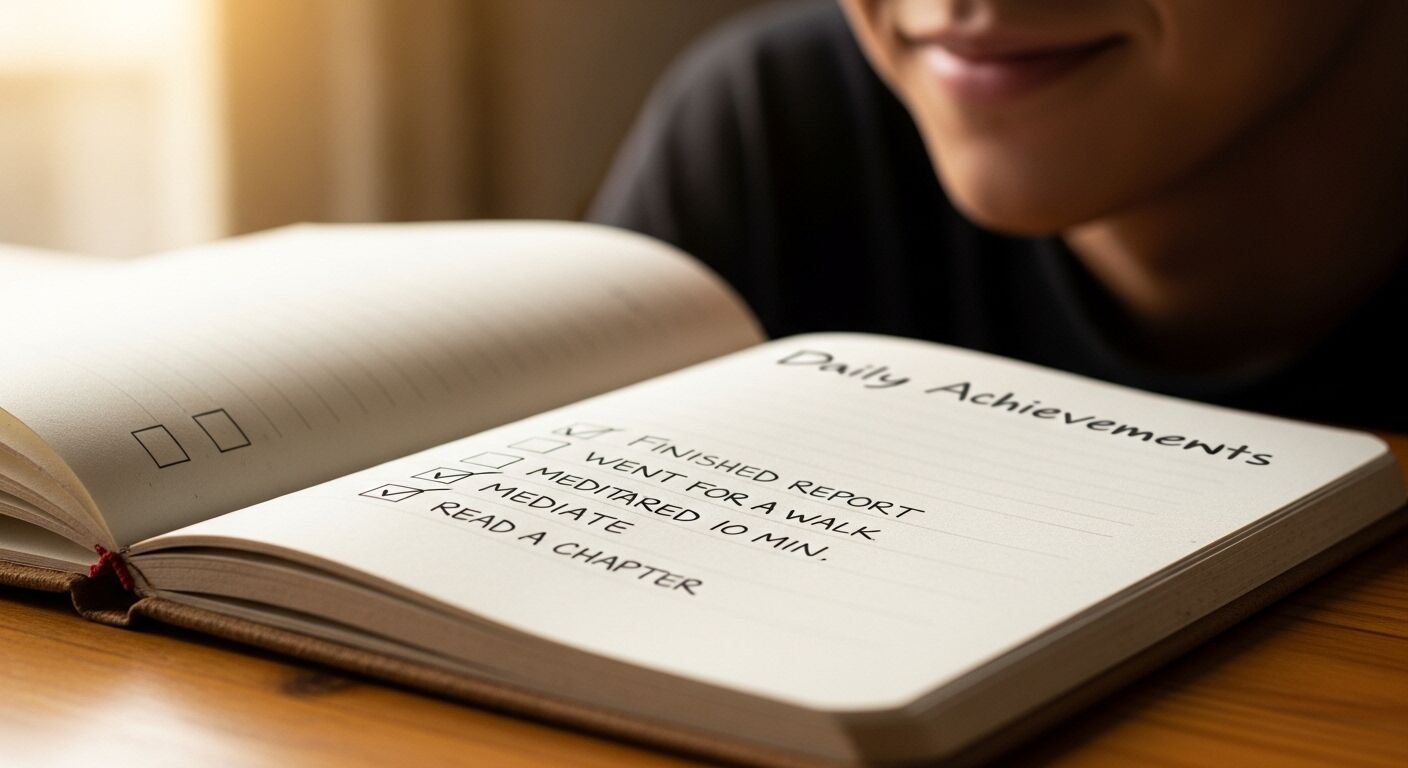 Daily Achievements
FINISHED REPORT
WENT FOR A WALK
MEDITARED 10 MIN.
MEDIATE
READ A CHAPTER